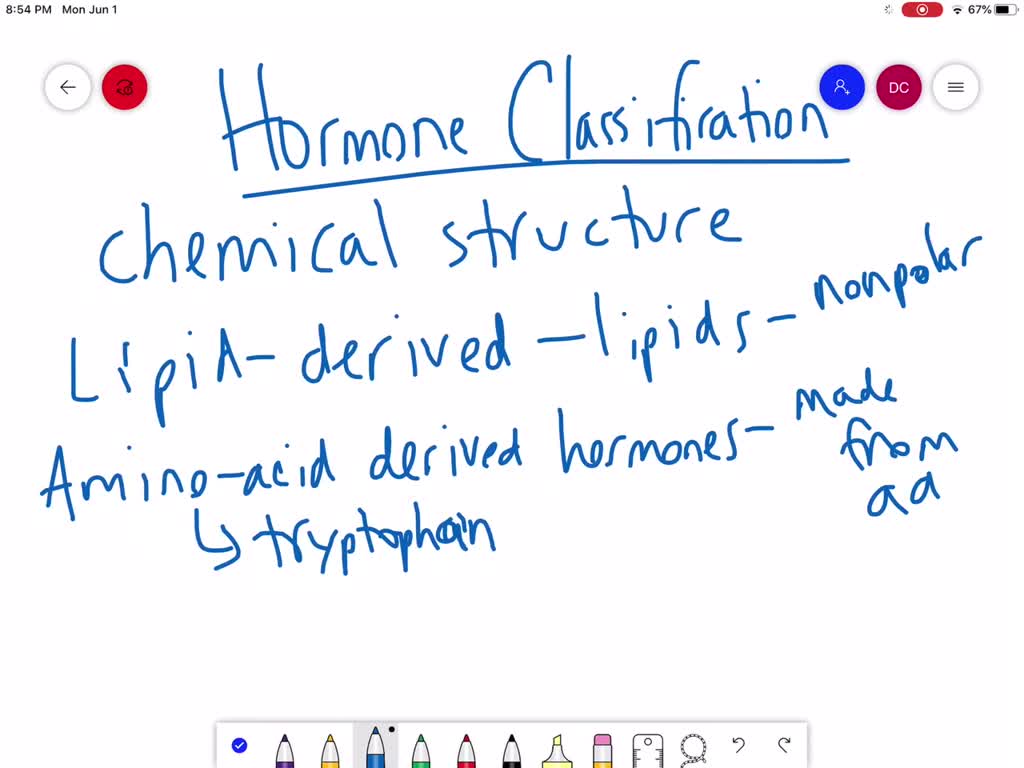 8:54 PM Mon Jun 1 67%
DC
Hormone Classification
chemical structure
Lipid-derived - lipids - nonpolar
Amino-acid derived hormones - made from aa
↳ tryptophan